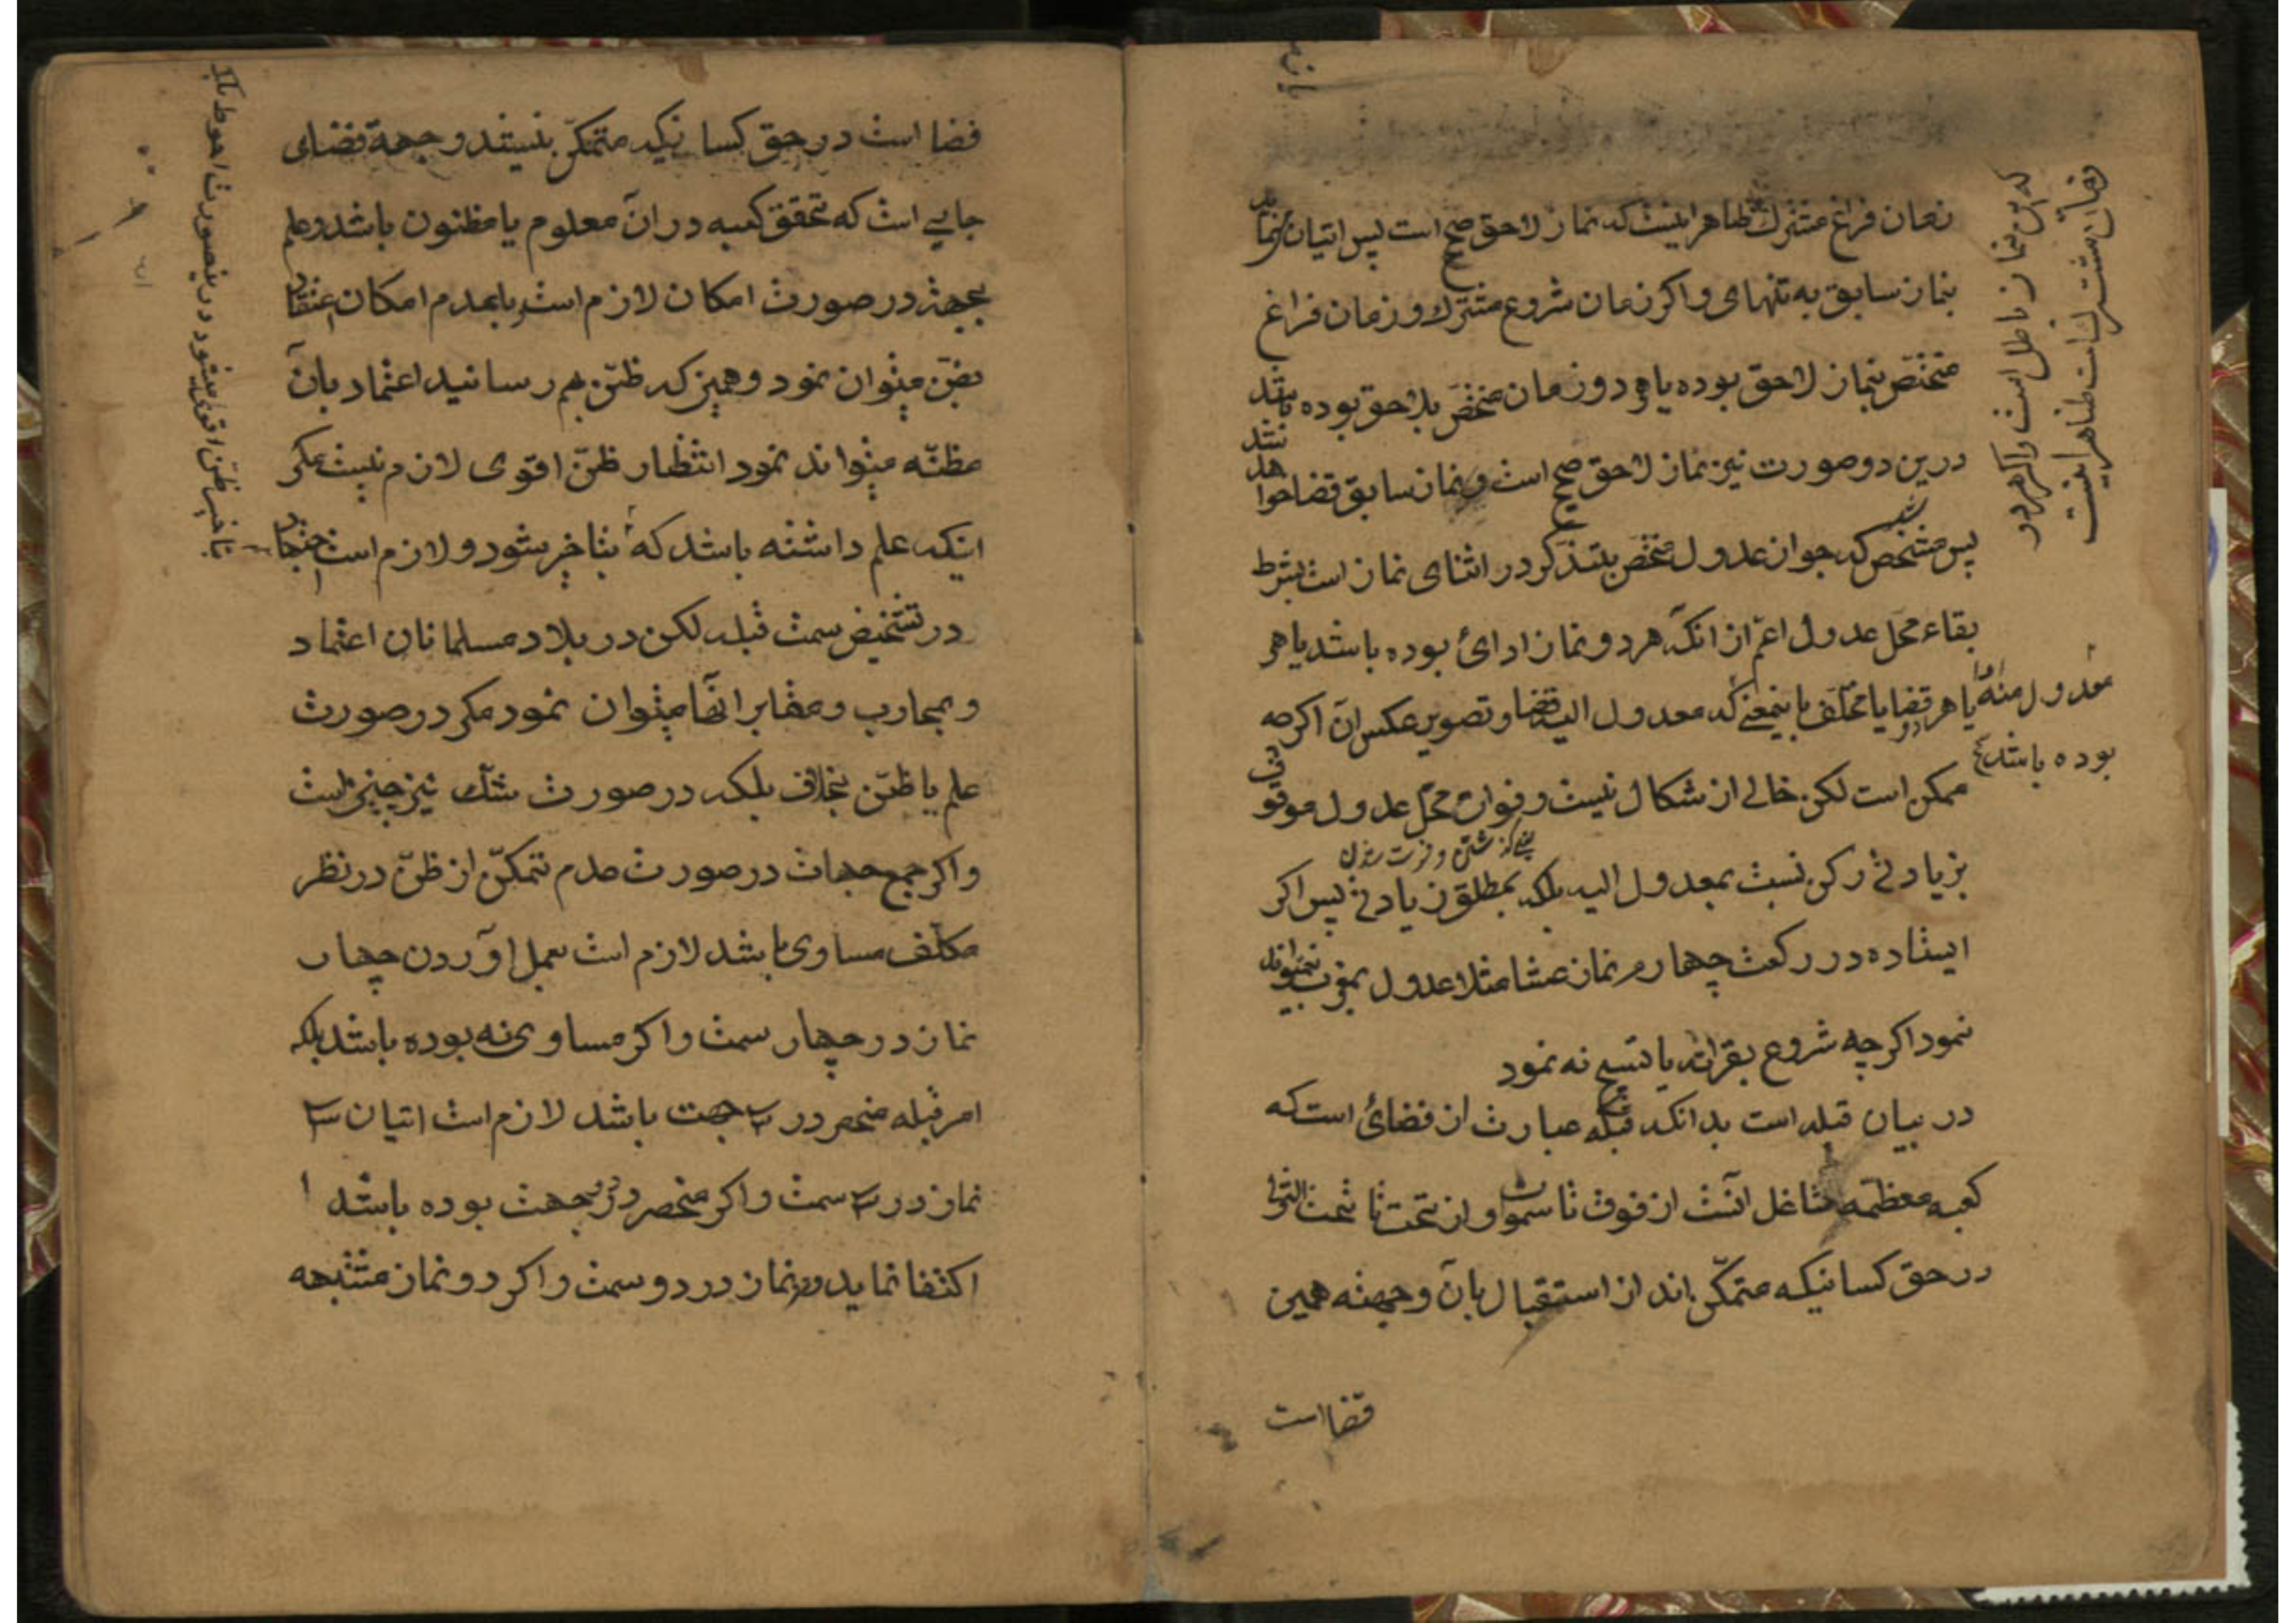 زمان فراغ مشترک ظاهر اینست که نماز لاحق صحیح است پس اتیان نماید
بنماز سابق به تنهای و اکر زمان شروع مشترک و زمان فراغ
مختص بنماز لاحق بوده یا هر دو زمان مختص بلاحق بوده باشد
درین دو صورت نیز نماز لاحق صحیح است و نماز سابق قضا خواهد شد
پس مشخص شد که جواز عدول مختص بتذکر در اثنای نماز است بشرط
بقاء محل عدول اعم از انکه هر دو نماز ادائ بوده باشد یا هر
دو قضا یا مختلف باینمعنی که معدول الیه قضا و تصویر عکس ان اکرچه
ممکن است لکن خالی از شکال نیست و فوات محل عدول موقوف
بزیادتی رکن نسبت بمعدول الیه بلکه بمطلق زیادتی پس اکر
ایستاده در رکعت چهارم نماز عشا مثلا عدول بمغرب نمیتواند
نمود اکرچه شروع بقرائت یا تسبیح نه نمود
در بیان قبله است بدانکه قبله عبارت از فضائ است که
کعبه معظمه شاغل انست از فوق تا سموات و از تحت تا تحت الثری
در حق کسانیکه متمکن اند از استقبال بان و جهته همین
قضا است
که این نماز باطل است و اکر هر دو
زمان مشترک است ظاهر اینست
معدول منه ادا یا هر
بوده باشد
یعنی کذشتن و فوت شدن
فضا است در حق کسانیکه متمکن نیستند و جهة فضای
جایی است که تحقق کعبه در ان معلوم یا مظنون باشد و علم
بجهة در صورت امکان لازم است و با عدم امکان اعتقاد
بظن میتوان نمود و همین که ظن بهم رسانید اعتماد بان
مظنه میتواند نمود انتظار ظن اقوی لازم نیست مکر
اینکه علم داشته باشد که بتاخیر شود و لازم است اجتهاد
در تشخیص سمت قبله لکن در بلاد مسلمانان اعتماد
و بمحاریب و مقابر انها میتوان نمود مکر در صورت
علم یا ظن بخلاف بلکه در صورت شک نیز چنین است
و اکر جمیع جهات در صورت عدم تمکن از ظن در نظر
مکلف مساوی باشد لازم است بعمل اوردن چهار
نماز در چهار سمت و اکر مساوی نه بوده باشد بلکه
امر قبله منحصر در سه جهت باشد لازم است اتیان سه
نماز در سه سمت و اکر منحصر در دو جهت بوده باشد
اکتفا نماید بدو نماز در دو سمت و اکر دو نماز مشتبهه
تاخیر ظن اقوی میشود درینصورت احوط بلکه